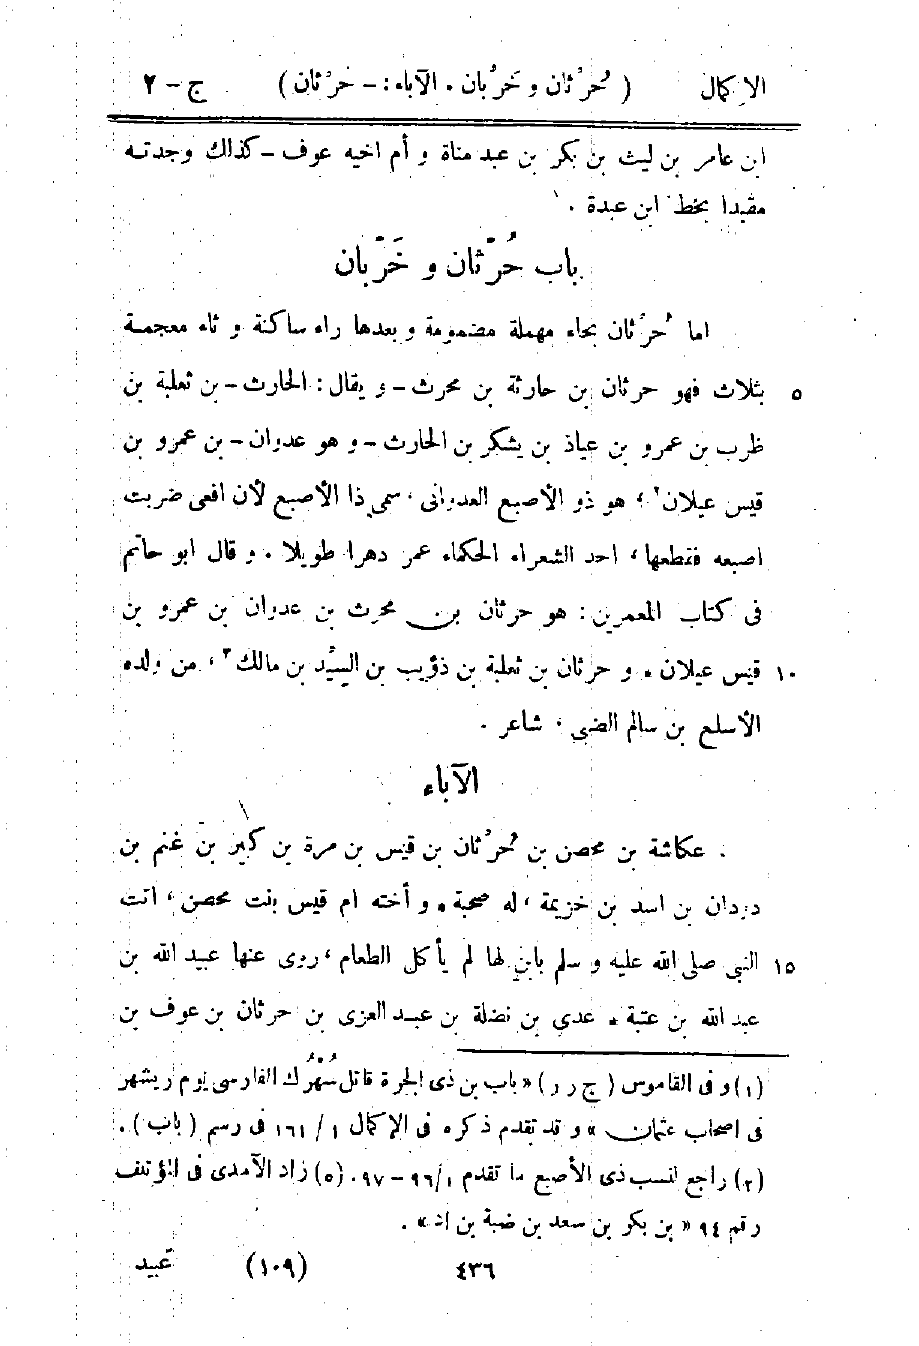 الإكمال ( حُرْثان و خَرْبان . الآباء : - حرْثان ) ج - ٢
ابن عامر بن ليث بن بكر بن عبد مناة و أم اخيه عوف - كذلك وجدته
مقيدا بخط ابن عبدة . ١
باب حُرْثان و خَرّبان
اما حُرْثان بحاء مهملة مضمومة و بعدها راء ساكنة و ثاء معجمة
٥ بثلاث فهو حرثان بن حارثة بن محرث - و يقال : الحارث - بن ثعلبة بن
ظرب بن عمرو بن عياذ بن يشكر بن الحارث - و هو عدوان - بن عمرو بن
قيس عيلان ٢ ، هو ذو الأصبع العدوانى ، سمى ذا الأصبع لأن افعى ضربت
اصبعه فقطعها ، احد الشعراء الحكماء عمر دهرا طويلا . و قال ابو حاتم
فى كتاب المعمرين : هو حرثان بن محرث بن عدوان بن عمرو بن
١٠ قيس عيلان . و حرثان بن ثعلبة بن ذؤيب بن السيّد بن مالك ٣ ، من ولده
الأسلع بن سالم الضبى ، شاعر .
الآباء
. عكاشة بن محصن بن حُرْثان بن قيس بن مرة بن كبير بن غنم بن
دودان بن اسد بن خزيمة ، له صحبة . و أخته ام قيس بنت محصن ، اتت
١٥ النبى صلى الله عليه و سلم بابن لها لم يأكل الطعام ، روى عنها عبيد الله بن
عبد الله بن عتبة . عدي بن نضلة بن عبد العزى بن حرثان بن عوف بن
(١) و فى القاموس ( ج ر ر ) « باب بن ذى الجرة قاتل سُهْرُك الفارسى يوم ريشهر
فى اصحاب عثمان » و قد تقدم ذكره فى الإكمال ١ / ١٦١ فى رسم ( باب ) .
(٢) راجع لنسب ذى الأصبع ما تقدم ١/ ٩٦ - ٩٧ . (٥) زاد الآمدى فى المؤتلف
رقم ٩٤ « بن بكر بن سعد بن ضبة بن اد » .
٤٣٦ (١٠٩) عبيد